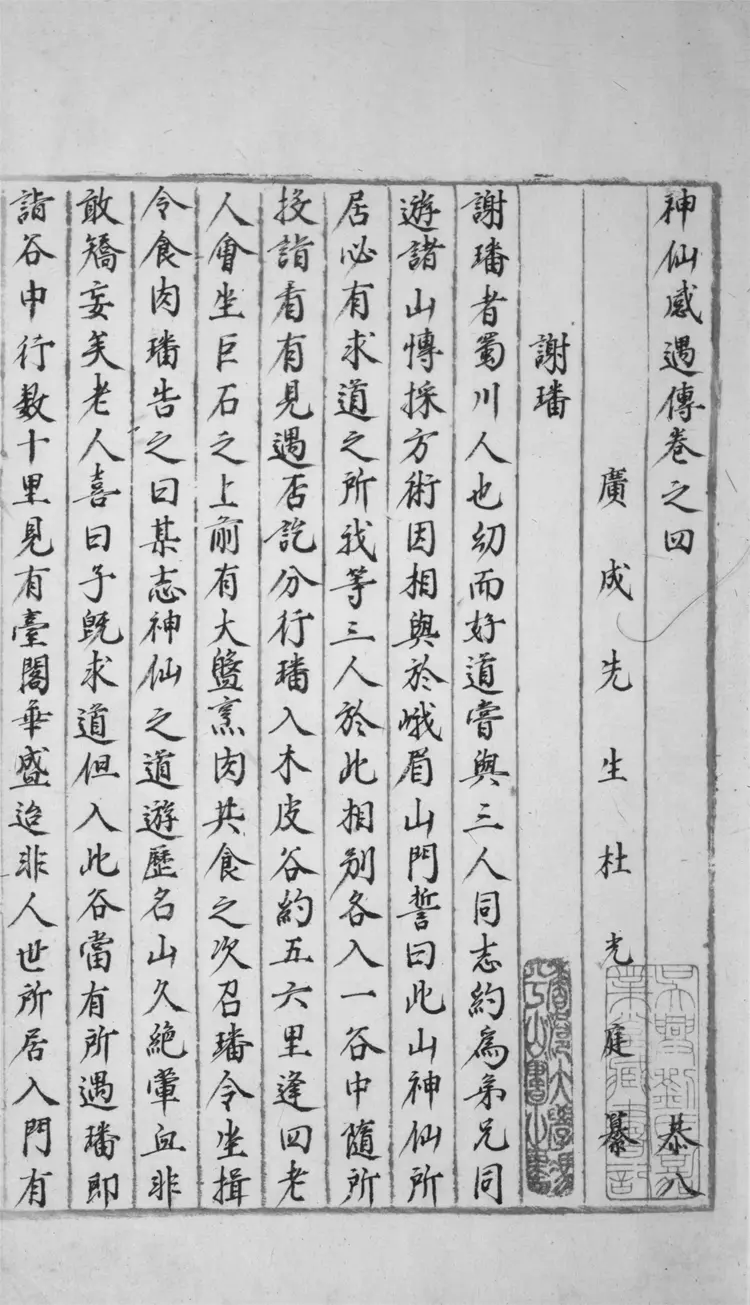 神仙感遇傳卷之四　恭八
廣成先生杜光庭纂
謝璠
謝璠者蜀川人也幼而好道嘗與三人同志約為弟兄同
遊諸山慱採方術因相與於峨眉山門誓曰此山神仙所
居必有求道之所我等三人於此相別各入一谷中隨所
投詣看有見遇否訖分行璠入木皮谷約五六里逢四老
人會坐巨石之上前有大盤烹肉共食之次召璠令坐揖
令食肉璠告之曰某志神仙之道遊歷名山久絶葷血非
敢矯妄矣老人喜曰子既求道但入此谷當有所遇璠即
詣谷中行数十里見有臺閣華盛迨非人世所居入門有